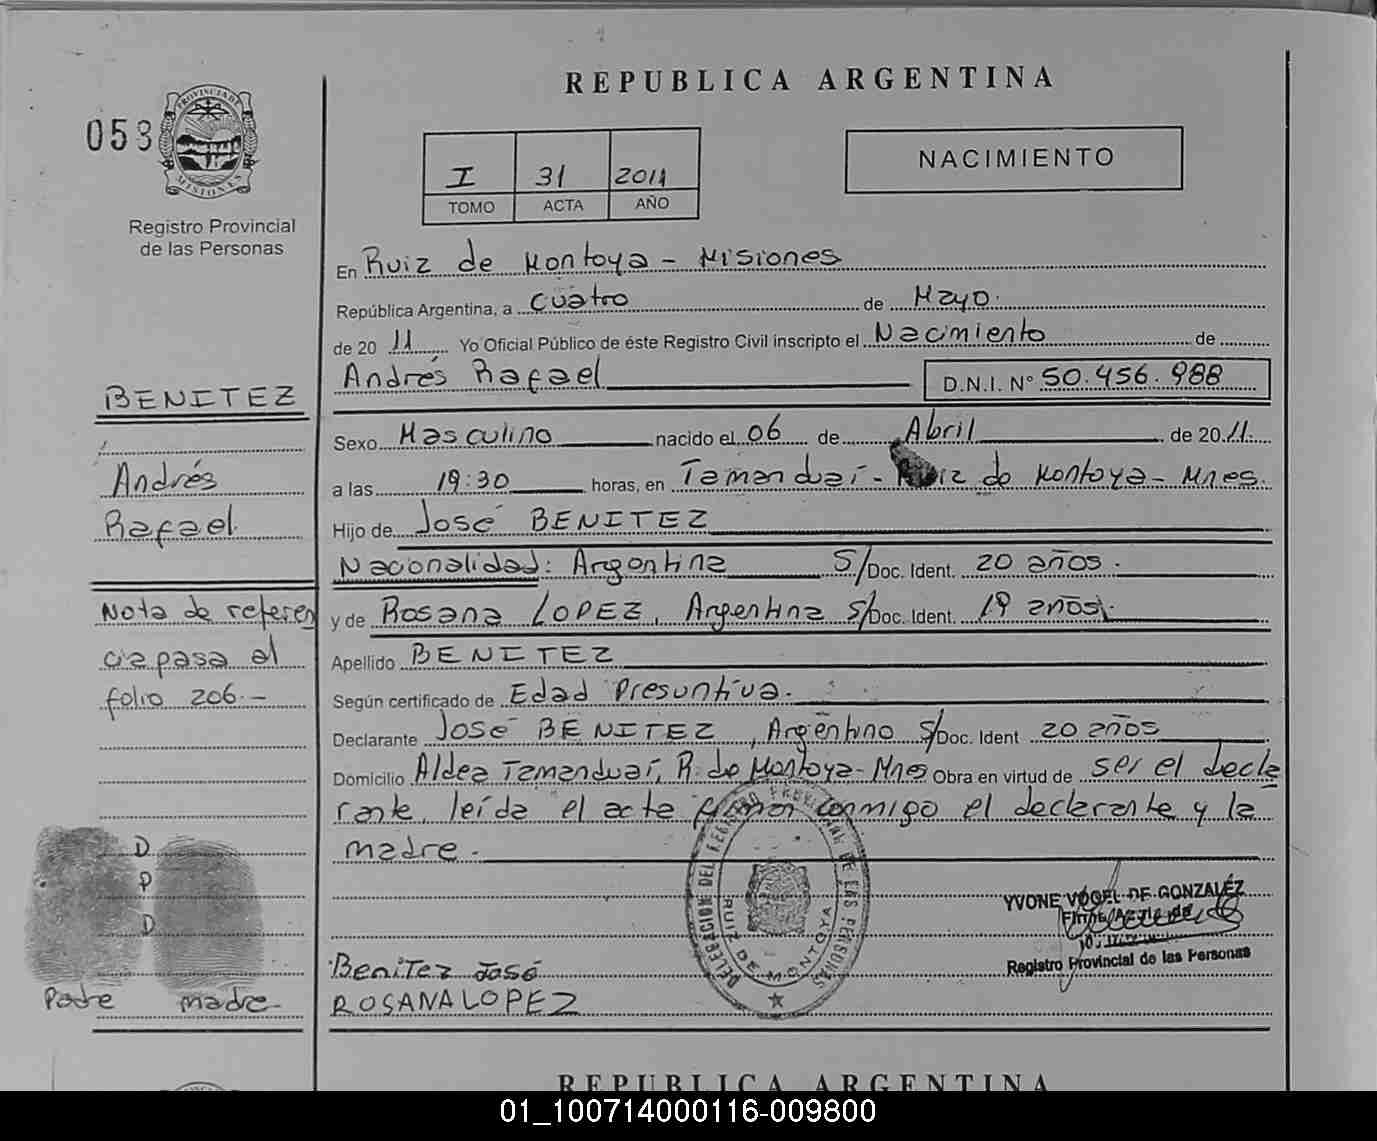 REPUBLICA ARGENTINA
053
PROVINCIA DE
MISIONES
Registro Provincial
de las Personas
I 31 2011
TOMO ACTA AÑO
NACIMIENTO
En Ruiz de Montoya - Misiones
República Argentina, a cuatro de Mayo.
de 20 11 Yo Oficial Público de éste Registro Civil inscripto el Nacimiento de
Andrés Rafael D.N.I. N° 50.456.988
BENITEZ
Andrés
Rafael
Sexo Masculino nacido el 06 de Abril de 20 11.
a las 19:30 horas, en Tamanduaí - Ruiz de Montoya - Mnes.
Hijo de José BENITEZ
Nacionalidad: Argentina S/Doc. Ident. 20 años.
y de Rosana LOPEZ, Argentina S/Doc. Ident. 19 años.
Apellido BENITEZ
Según certificado de Edad Presuntiva.
Declarante José BENITEZ, Argentino S/Doc. Ident 20 años
Domicilio Aldea Tamanduaí, R. de Montoya - Mnes Obra en virtud de ser el decla
rante, leída el acta firman conmigo el declarante y la
madre.
Nota de referen
cia pasa al
folio 206.-
D
P
D
Padre madre
Benitez José
ROSANA LOPEZ
DELEGACION DEL REGISTRO PROVINCIAL DE LAS PERSONAS
RUIZ DE MONTOYA
YVONE VOGEL DE GONZALEZ
Registro Provincial de las Personas
REPUBLICA ARGENTINA
01_100714000116-009800